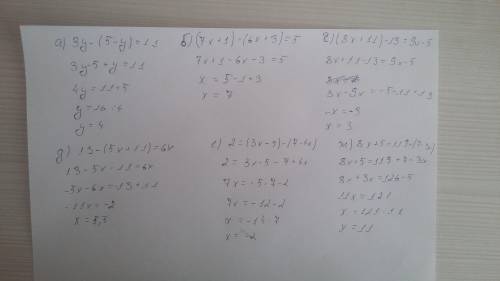 а) 3y-(5-y)=11
3y-5+y=11
4y=11+5
y=16:4
y=4
б) (7x+1)-(6x+3)=5
7x+1-6x-3=5
x=5-1+3
x=7
(8x+11)-13=9x-5
8x+11-13=9x-5
-x=-3
x=3
д) 13-(5x+11)=6x
13-5x-11=6x
-11x=-2
е) 2=(3x-5)-(7-4x)
2=3x-5-7+4x
7x=-5-7-2
7x=-12-2
x=-14:7
x=-2
ж) 8x+5=119+(7-3x)
8x+5=119+7-3x
8x+3x=126-5
11x=121
x=121:11
x=11